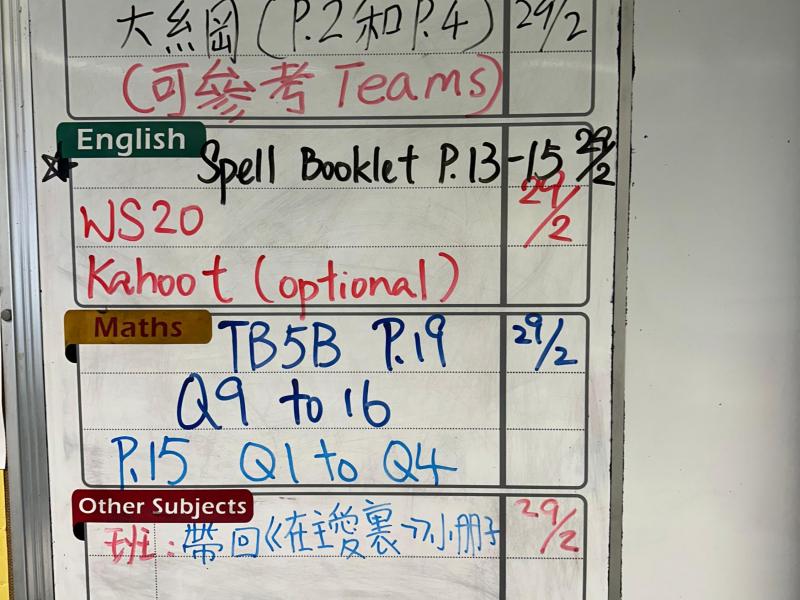 大綱(P.2和P.4) 29/2
(可參考Teams)
English
☆ Spell Booklet P.13-15 29/2
WS20 29/2
Kahoot (optional)
Maths
TB5B P.19 29/2
Q9 to 16
P.15 Q1 to Q4
Other Subjects
班:帶回《在主愛裏》小冊子 29/2